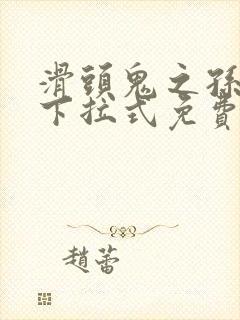 滑頭鬼之孫
下拉式免費
趙蕾